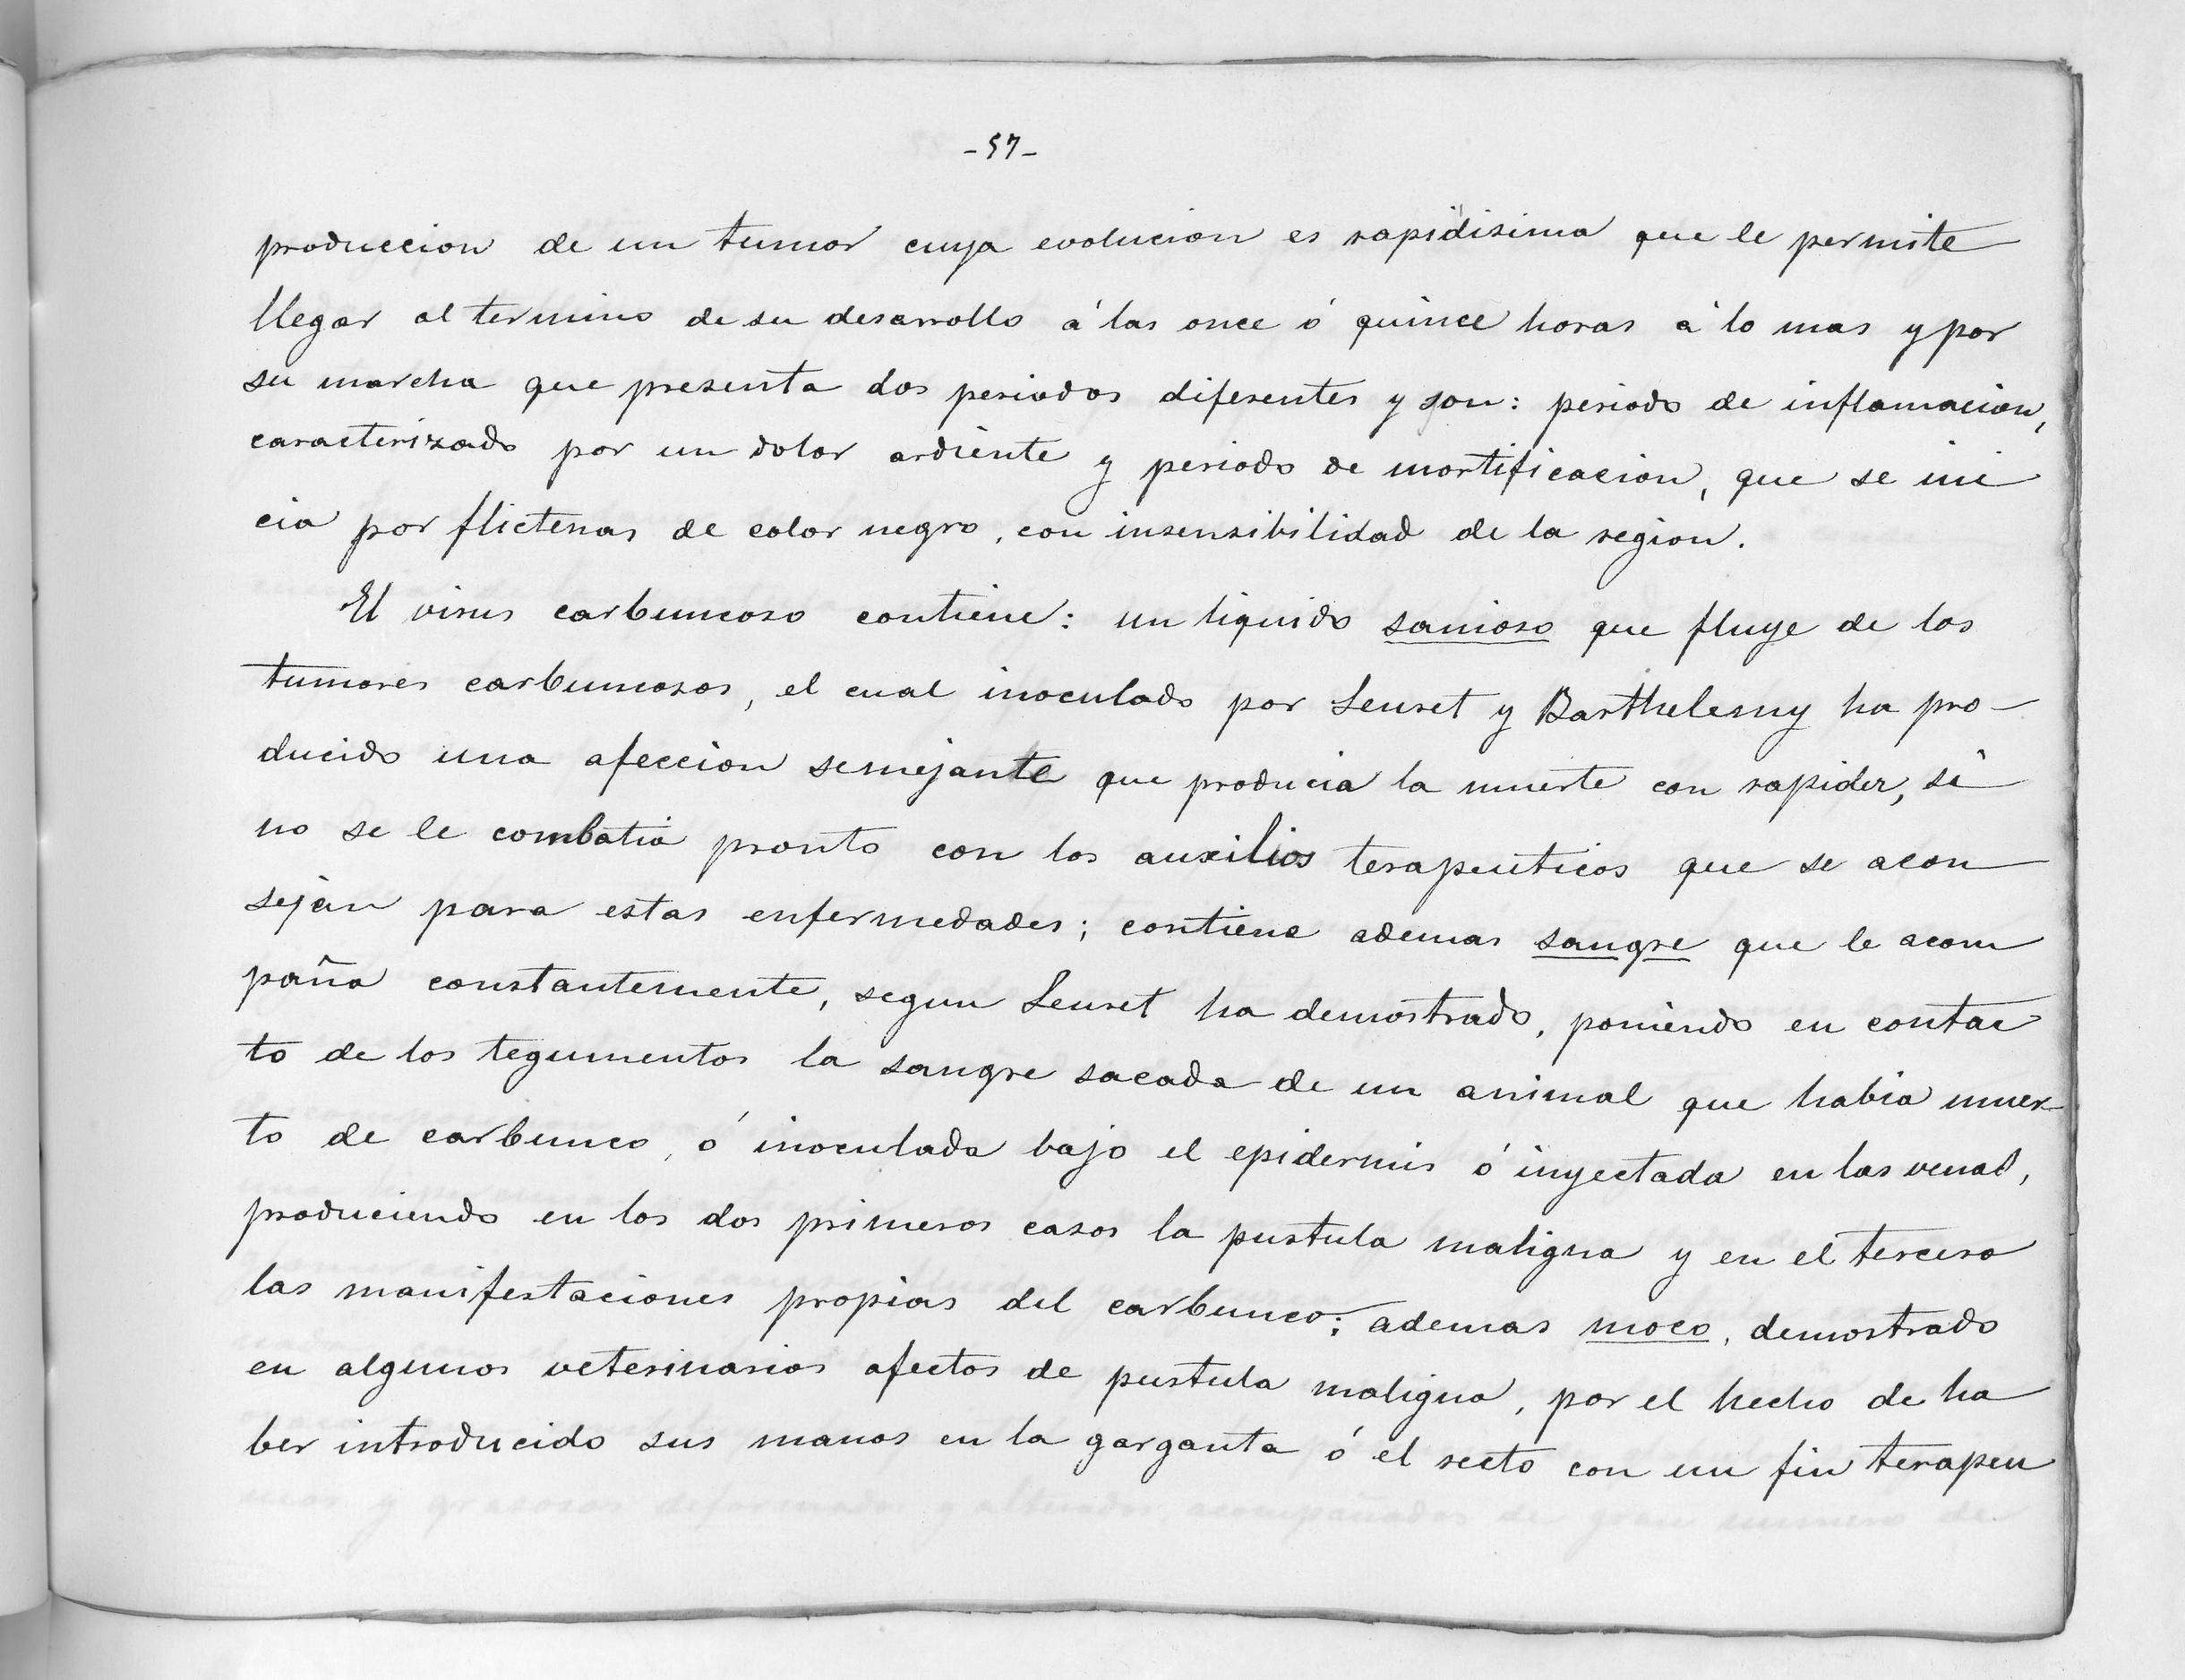 -57-
produccion de un tumor cuya evolucion es rapidisima que le permite
llegar al termino de su desarrollo á las once ó quince horas á lo mas y por
su marcha que presenta dos periodos diferentes y son: periodo de inflamacion,
caracterizado por un dolor ardiente y periodo de mortificacion, que se ini
cia por flictenas de color negro, con insensibilidad de la region.
El virus carbuncoso contiene: un liquido sanioso que fluye de los
tumores carbuncosos, el cual inoculado por Leuret y Barthelemy ha pro-
ducido una afeccion semejante que producia la muerte con rapidez, si
no se le combatia pronto con los auxilios terapeuticos que se acon
sejan para estas enfermedades; contiene ademas sangre que le acom
paña constantemente, segun Leuret ha demostrado, poniendo en contac
to de los tegumentos la sangre sacada de un animal que habia muer-
to de carbunco, ó inoculada bajo el epidermis ó inyectada en las venas,
produciendo en los dos primeros casos la pustula maligna y en el tercero
las manifestaciones propias del carbunco; ademas moco, demostrado
en algunos veterinarios afectos de pustula maligna, por el hecho de ha
ber introducido sus manos en la garganta ó el recto con un fin terapeu